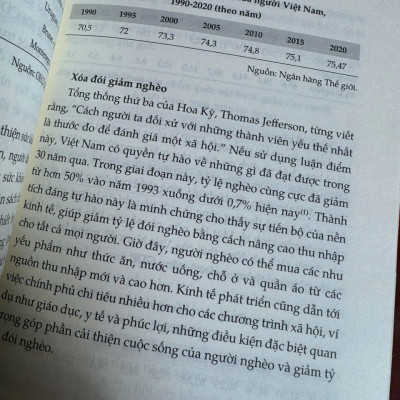 người Việt Nam,
1990-2020 (theo năm)
1990 1995 2000 2005 2010 2015 2020
70,5 72 73,3 74,3 74,8 75,1 75,47
Nguồn: Ngân hàng Thế giới.
Xóa đói giảm nghèo
Tổng thống thứ ba của Hoa Kỳ, Thomas Jefferson, từng viết
rằng, “Cách người ta đối xử với những thành viên yếu thế nhất
là thước đo để đánh giá một xã hội.” Nếu sử dụng luận điểm
này, Việt Nam có quyền tự hào về những gì đã đạt được trong
30 năm qua. Trong giai đoạn này, tỷ lệ nghèo cùng cực đã giảm
từ hơn 50% vào năm 1993 xuống dưới 0,7% hiện nay(1). Thành
tích đáng tự hào này là minh chứng cho thấy sự tiến bộ của nền
kinh tế, giúp giảm tỷ lệ đói nghèo bằng cách nâng cao thu nhập
cho tất cả mọi người. Giờ đây, người nghèo có thể mua các nhu
yếu phẩm như thức ăn, nước uống, chỗ ở và quần áo từ các
nguồn thu nhập mới và cao hơn. Kinh tế phát triển cũng dẫn tới
việc chính phủ chi tiêu nhiều hơn cho các chương trình xã hội, ví
dụ như giáo dục, y tế và phúc lợi, những điều kiện đặc biệt quan
trọng góp phần cải thiện cuộc sống của người nghèo và giảm tỷ
đói nghèo.